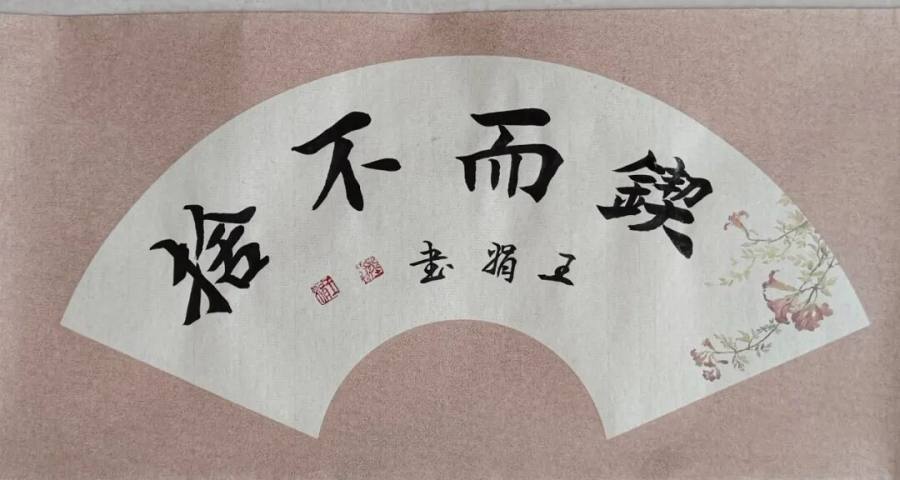 鍥而不捨
王娟書